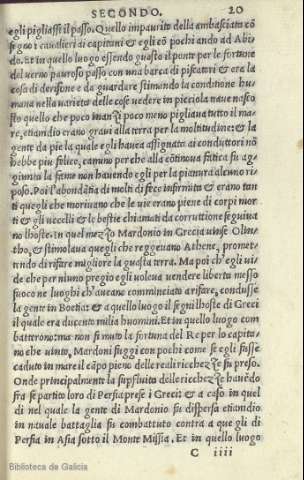 SECONDO. 20
egli pigliassi il passo. Quello impaurito della ambasciata cō
segno i cavalieri ai capitani & egli cō pochi ando ad Abi
do. Et in quello luogo essendo guasto il ponte per le fortune
del verno pauroso passo con una barca di piscatori & era la
cosa di dersione & da guardare stimando la conditione hu
mana nella varieta delle cose vedere in picciola nave nasco
sto quello che poco inanzi poco meno pigliava tutto il ma
re, etiandio erano gravi alla terra per la moltitudine: & la
gente da pie la quale egli havea assignata ai conduttori nō
hebbe piu felice, camino per che alla cōtinova fatica fu ag/
giunta la fame non havendo egli per la paura alcuno ri/
poso. Poi l'abondātia di molti di fece infirmita & erano tan
ti quegli che morivano che le vie erano piene di corpi mor
ti & gli uccelli & le bestie chiamati da corruttione seguiva
no lhoste. In quel mezzo Mardonio in Grecia vinse Olin/
tho, & stimolava quegli che reggevano Athene, promet/
tendo di rifare migliore la guasta terra. Ma poi ch'egli vi/
de che per niuno pregio egli voleva vendere liberta messo
fuoco ne luoghi ch'aveano comminciato a rifare, condusse
la gente in Boetia: & a quello luogo il segui lhoste di Greci
il quale era ducento milia huomini. Et in quello luogo com
batterono: ma non si muto la fortuna del Re per lo capita/
no che vinto, Mardoni fuggi con pochi come se egli fusse
caduto in mare il cāpo pieno delle reali ricchezze fu preso.
Onde principalmente la supfluita delle ricchezze havēdo
fra se partito loro di Persia prese i Greci: & a caso in quel
di nel quale la gente di Mardonio fu dispersa etiandio
in navale battaglia fu combattuto contra a que gli di
Persia in Asia sotto il Monte Missia. Et in quello luogo
C iiii
Biblioteca de Galicia